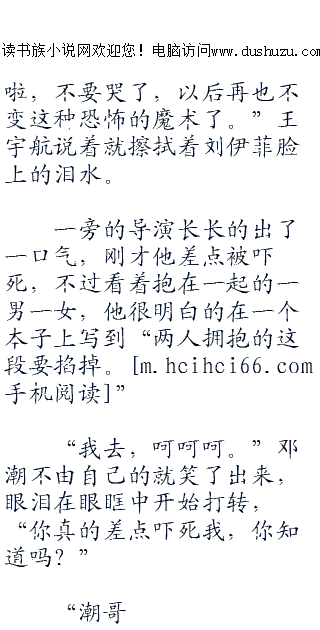 读书族小说网欢迎您！电脑访问www.dushuzu.com
啦，不要哭了，以后再也不
变这种恐怖的魔术了。”王
宇航说着就擦拭着刘伊菲脸
上的泪水。
一旁的导演长长的出了
一口气，刚才他差点被吓
死，不过看着抱在一起的一
男一女，他很明白的在一个
本子上写到“两人拥抱的这
段要掐掉。[m.hcihci66.com
手机阅读]”
“我去，呵呵呵。”邓
潮不由自己的就笑了出来，
眼泪在眼眶中开始打转，
“你真的差点吓死我，你知
道吗？”
“潮哥